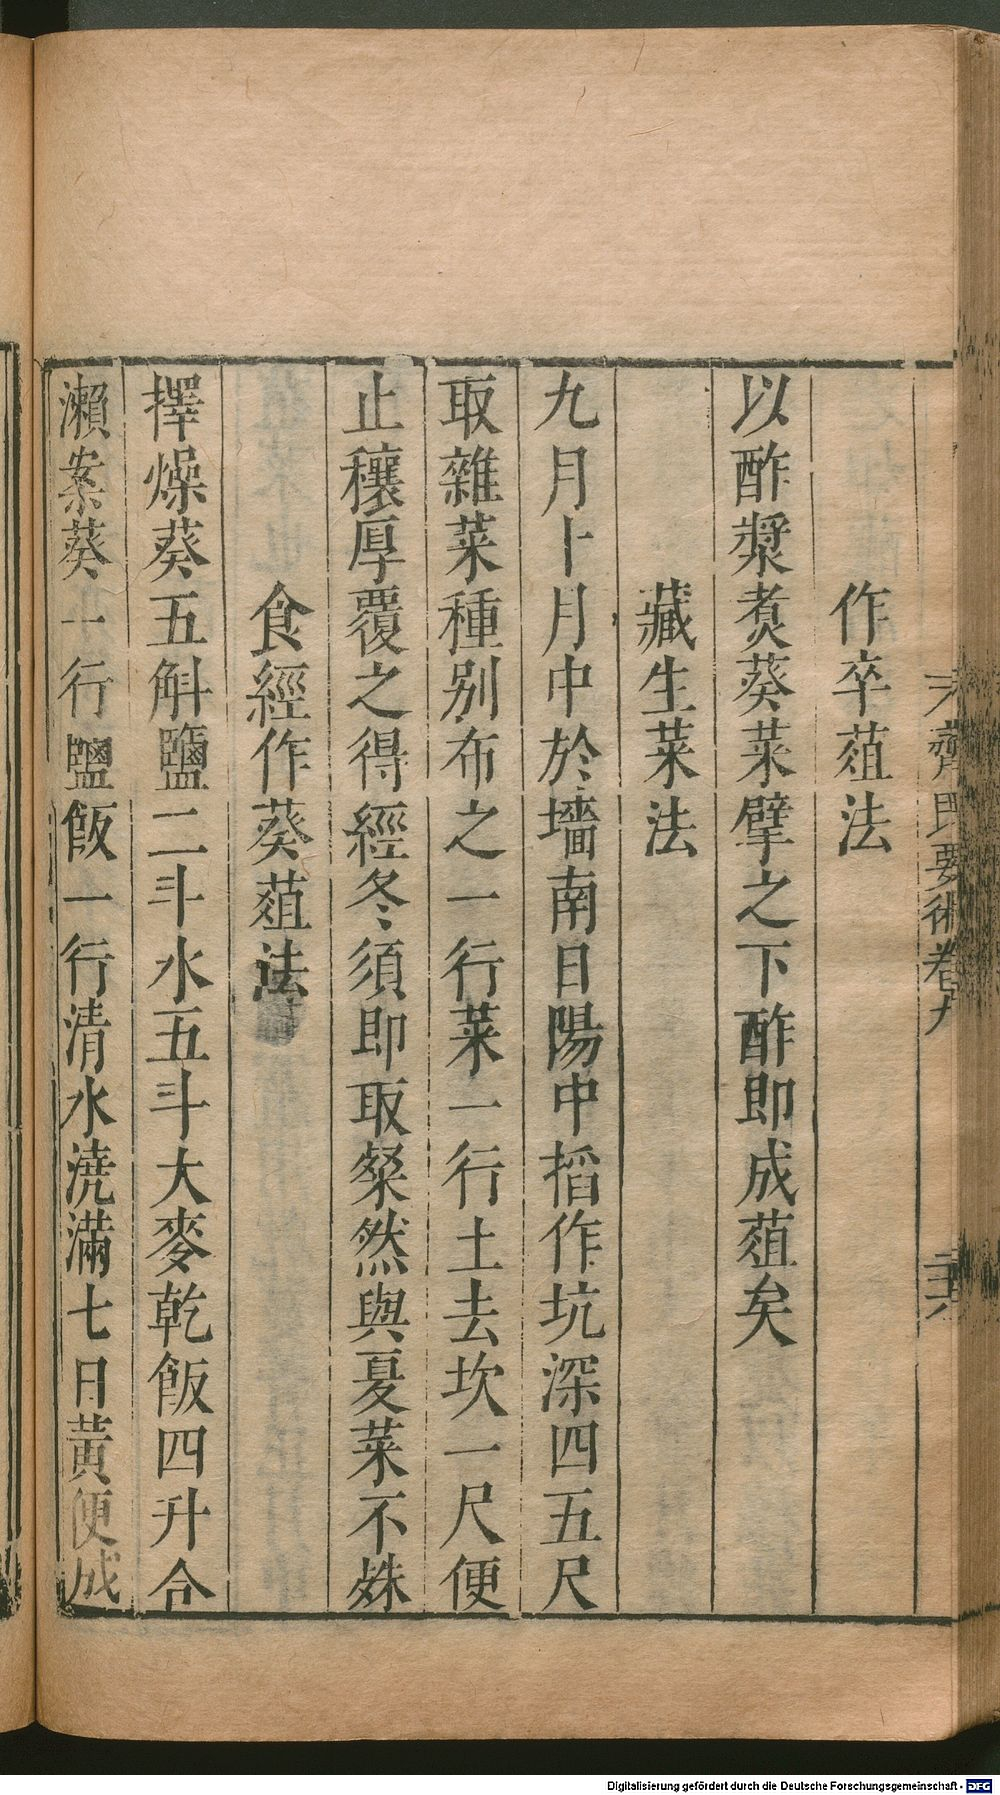 齊民要術卷九
作卒葅法
以酢漿煑葵菜擘之下酢即成葅矣
藏生菜法
九月十月中於墻南日陽中掐作坑深四五尺
取雜菜種別布之一行菜一行土去坎一尺便
止穰厚覆之得經冬須即取粲然與夏菜不姝
食經作葵葅法
擇燥葵五斛鹽二斗水五斗大麥乾飯四升合
瀨案葵一行鹽飯一行清水澆滿七日黃便成
Digitalisierung gefördert durch die Deutsche Forschungsgemeinschaft - DFG